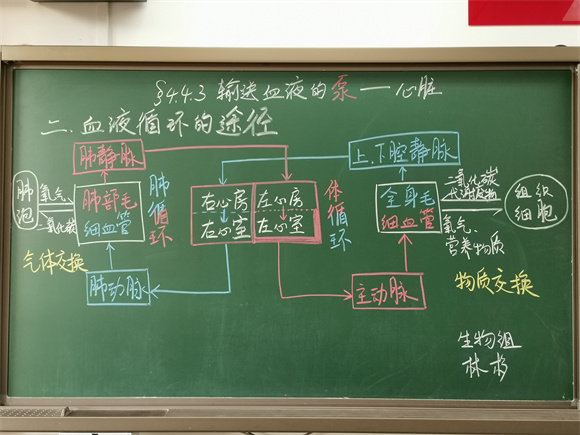 §4.4.3 输送血液的泵——心脏
二.血液循环的途径
肺静脉
上.下腔静脉
肺泡
氧气、
二氧化碳
肺部毛
细血管
肺循环
右心房
右心室
左心房
左心室
体循环
全身毛
细血管
二氧化碳
代谢废物
氧气、
营养物质
组织
细胞
气体交换
肺动脉
主动脉
物质交换
生物组
林杉